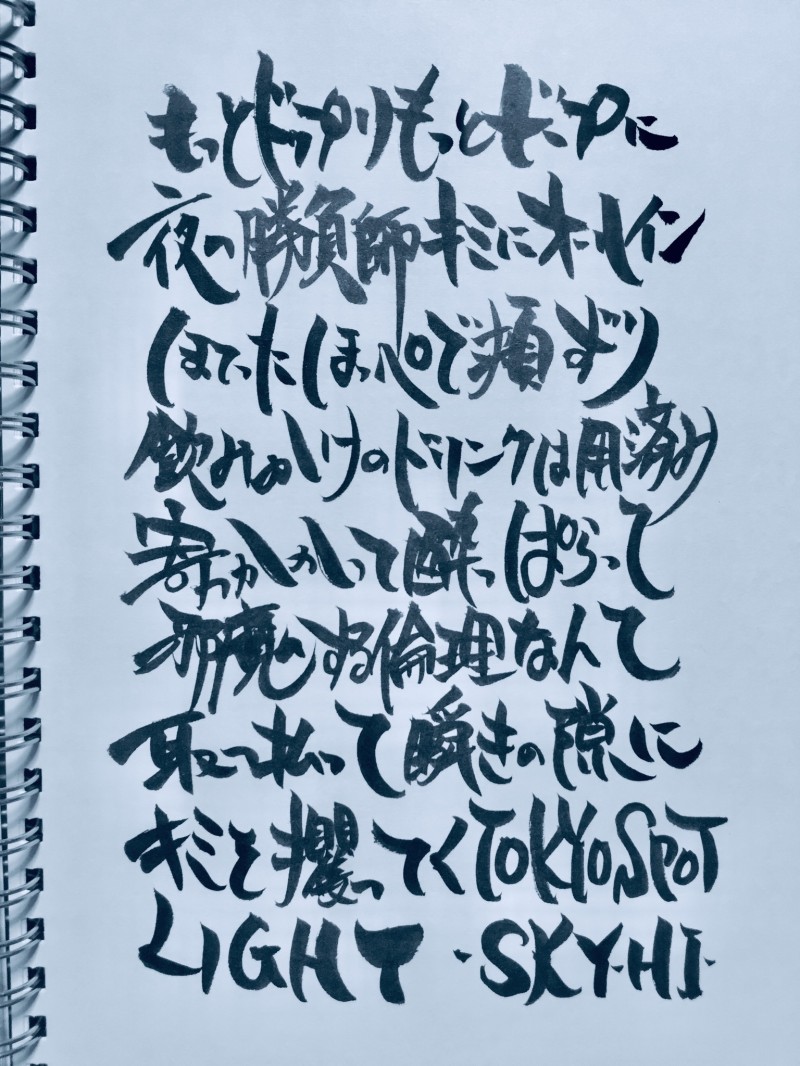 もっとドップリもっとディープに
夜の勝負師キミにオールイン
ほてったほっぺで頬ずり
飲みかけのドリンクは用済み
寄っかかって酔っぱらって
邪魔する倫理なんて
取っ払って瞬きの隙に
キミを攫ってくTOKYO SPOT
LIGHT -SKY-HI-